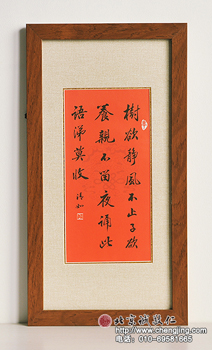 樹欲静風不止子欲
養親不留夜誦此
語涕莫收
北京诚敬仁
www.chengjing.com
电话：010-69581665